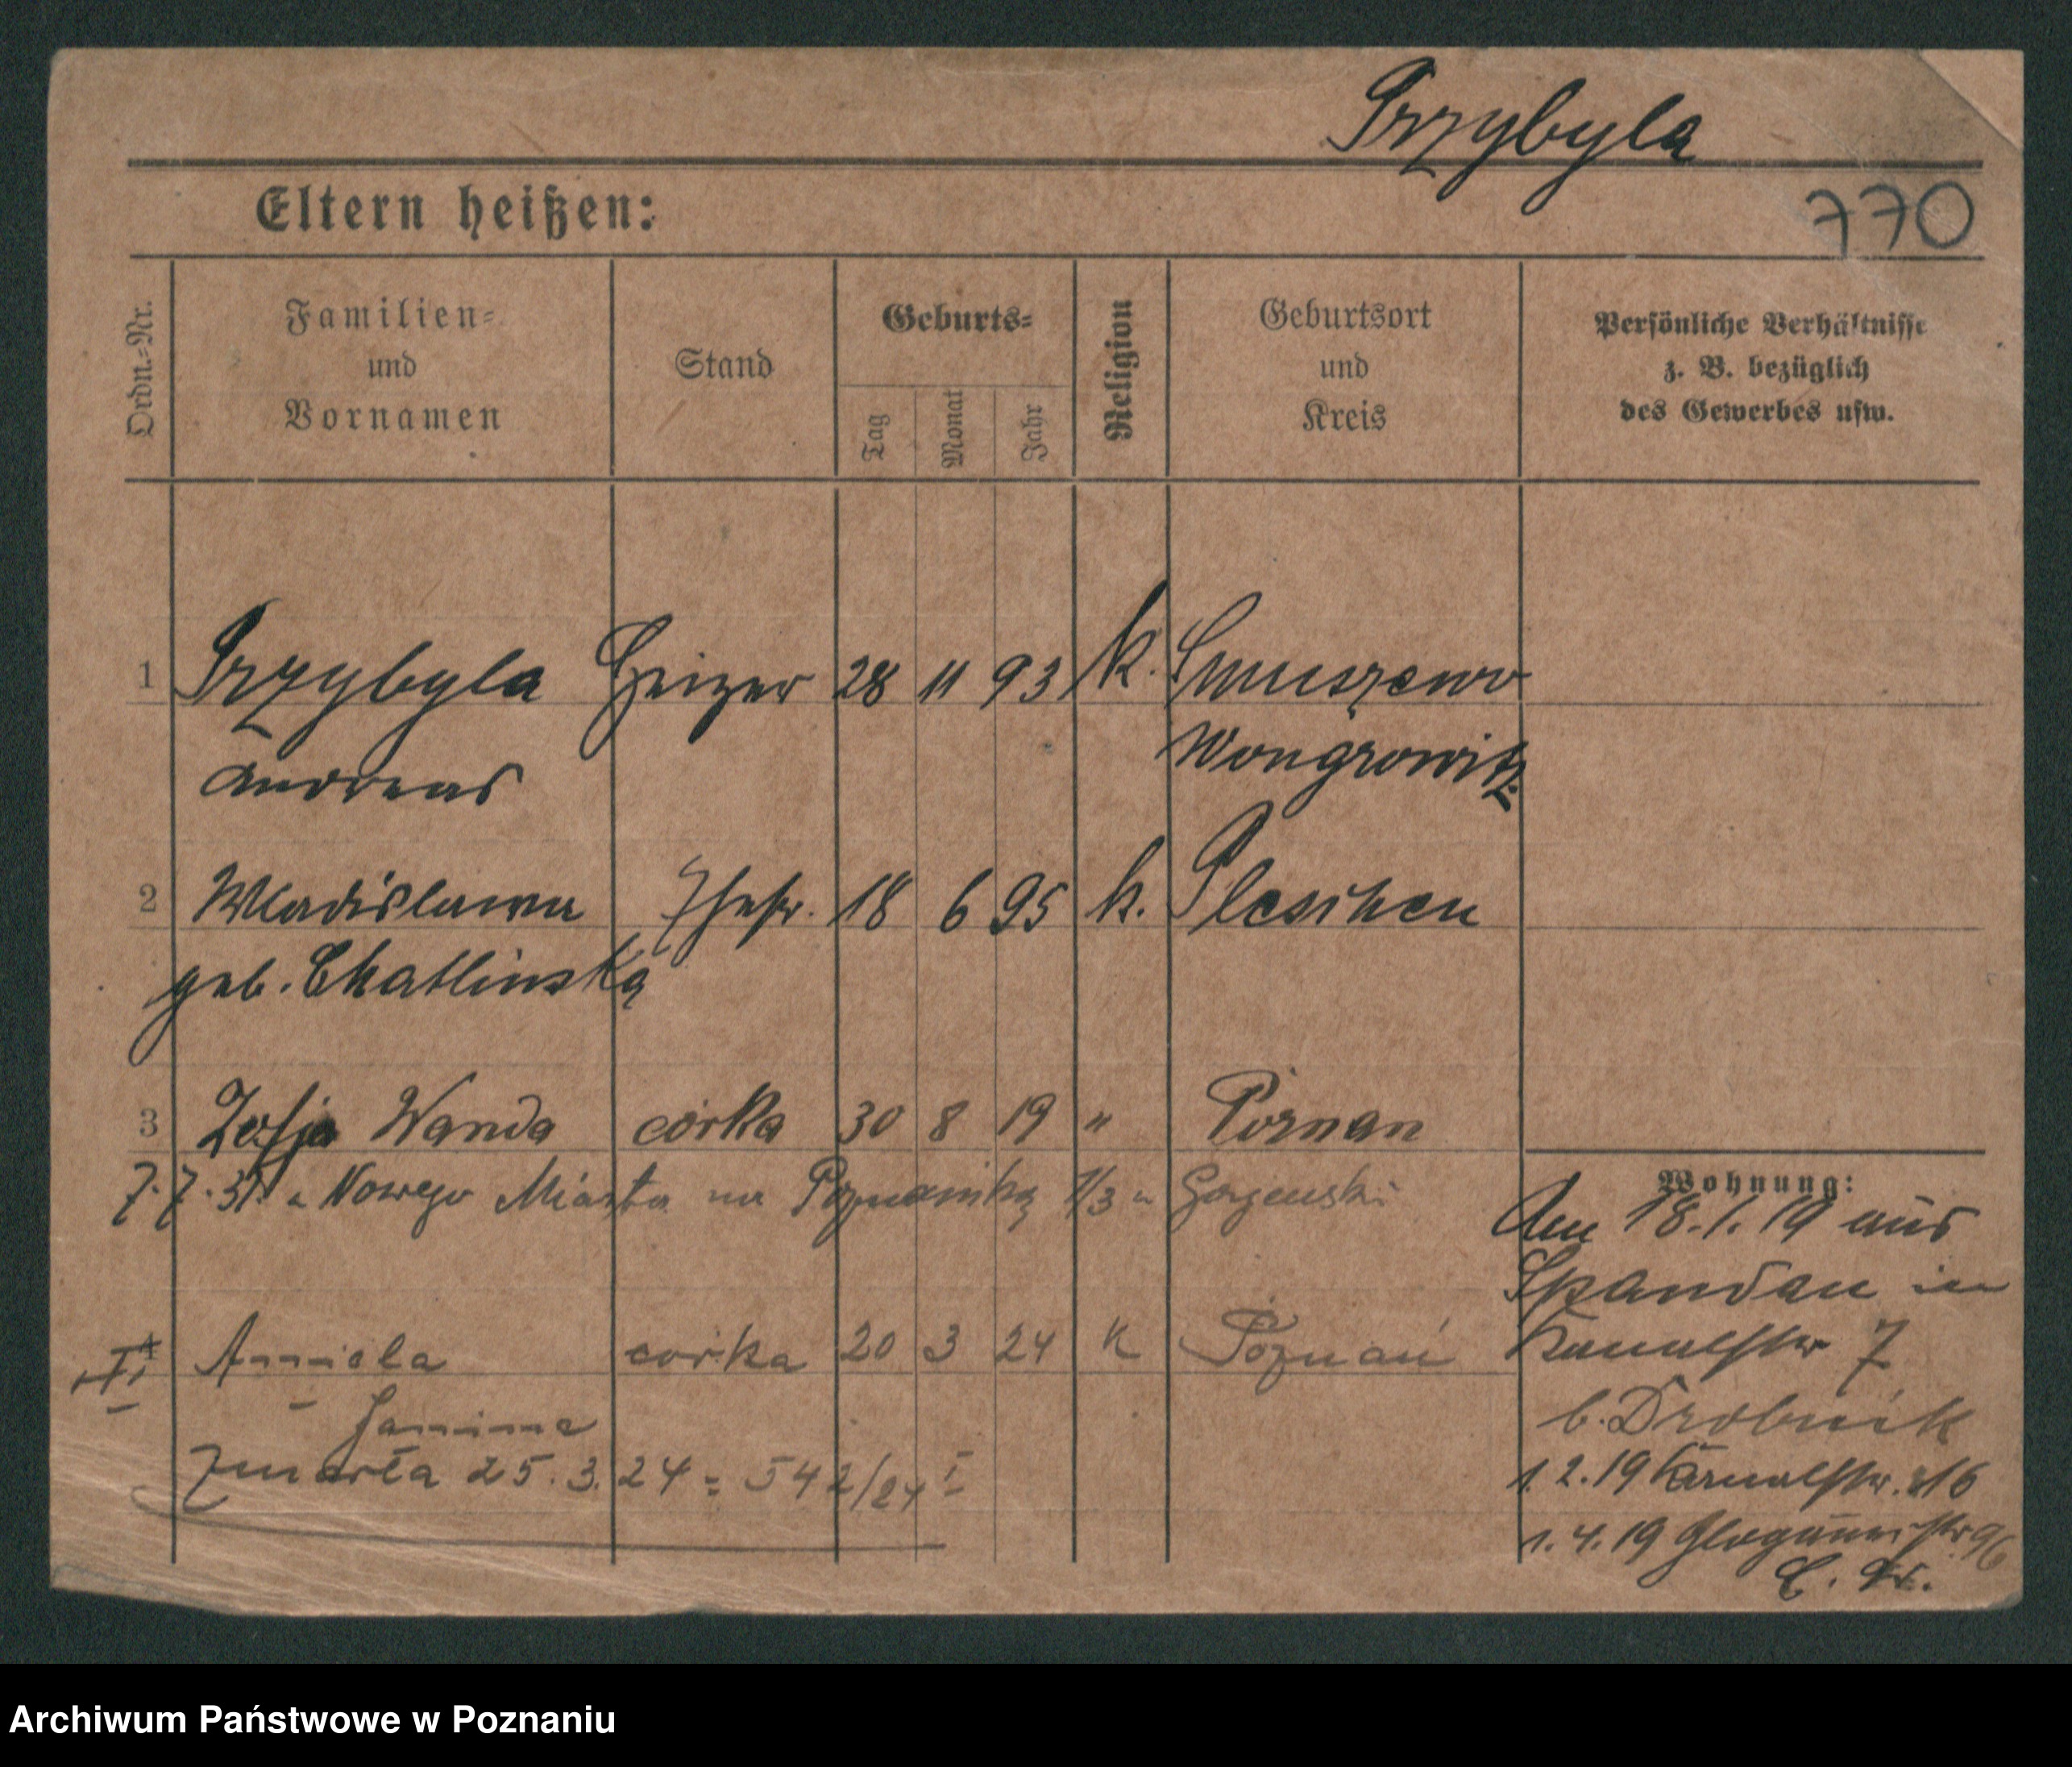 Przybyla
Eltern heißen:
770
Ordn.-Nr.
Familien-
und
Vornamen
Stand
Geburts-
Tag
Monat
Jahr
Religion
Geburtsort
und
Kreis
Persönliche Verhältnisse
z. B. bezüglich
des Gewerbes usw.
1 Przybyla Heizer 28 11 93 k. Smuszewo
Andreas Wongrowitz
2 Wladislawa Ehefr. 18 6 95 k. Pleschen
geb. Chatlinska
3 Zofja Wanda córka 30 8 19 " Poznan
7.7.31. Nowego Miasta 1/3
4 Aniela córka 20 3 24 k Poznań
Janina
zmarła 25.3.24 = 542/24 I
Wohnung:
Am 18.1.19 aus
Spandau in
Kanalstr 7
b. Drobnik
1.2.19 Kanalstr. 16
1.4.19 Glogauerstr 96
Archiwum Państwowe w Poznaniu